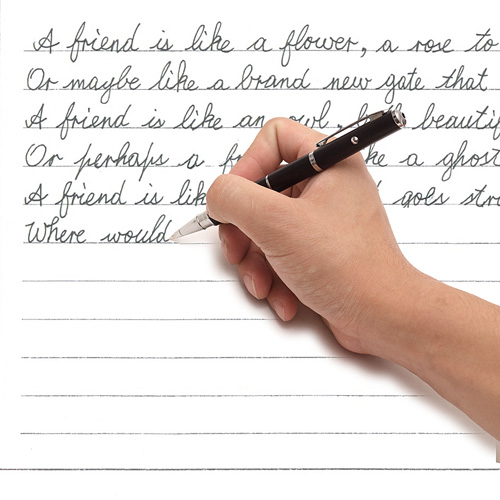 A friend is like a flower, a rose to
Or maybe like a brand new gate that
A friend is like an owl, beautif
Or perhaps a like a ghost
A friend is like goes
Where would